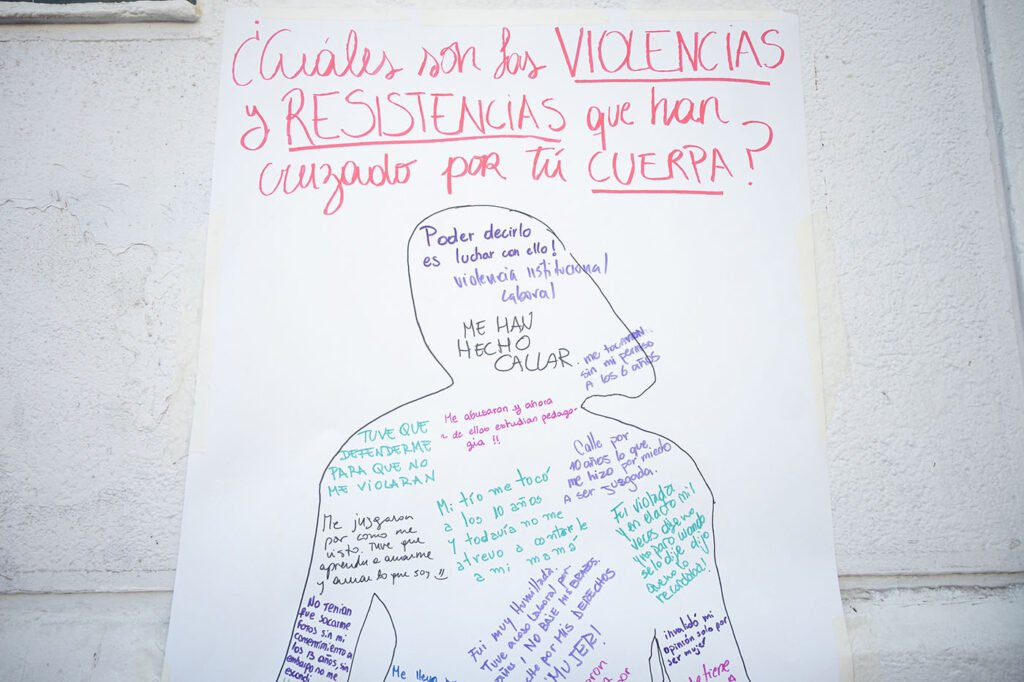 ¿Cuáles son las VIOLENCIAS
y RESISTENCIAS que han
cruzado por tú CUERPA?
Poder decirlo
es luchar con ello!
violencia institucional
laboral
ME HAN
HECHO
CALLAR
me tocaron
sin mi permiso
A los 6 años
Me abusaron y ahora
2 de ellos estudian pedago-
gia !!
TUVE QUE
DEFENDERME
PARA QUE NO
ME VIOLARAN
Calle por
10 años lo que
me hizo por miedo
A ser juzgada.
Mi tío me tocó
a los 10 años
y todavia no me
atrevo a contarle
a mi mamá
Fui violada
y en el acto mil
veces dije no
y no paró cuando
se lo dije dijo
que no lo
recordaba!
Me juzgaron
por como me
visto. Tuve que
aprender a amarme
y amar lo que soy !!
No tenían
que sacarme
fotos sin mi
consentimiento a
los 13 años, sin
embargo no me
escondí
Fui muy Humillada.
Tuve acoso laboral por
años, NO BAJE MIS BRAZOS.
por MIS DERECHOS
MUJER!
invalidó mi
opinión solo por
ser mujer
Me
tiene